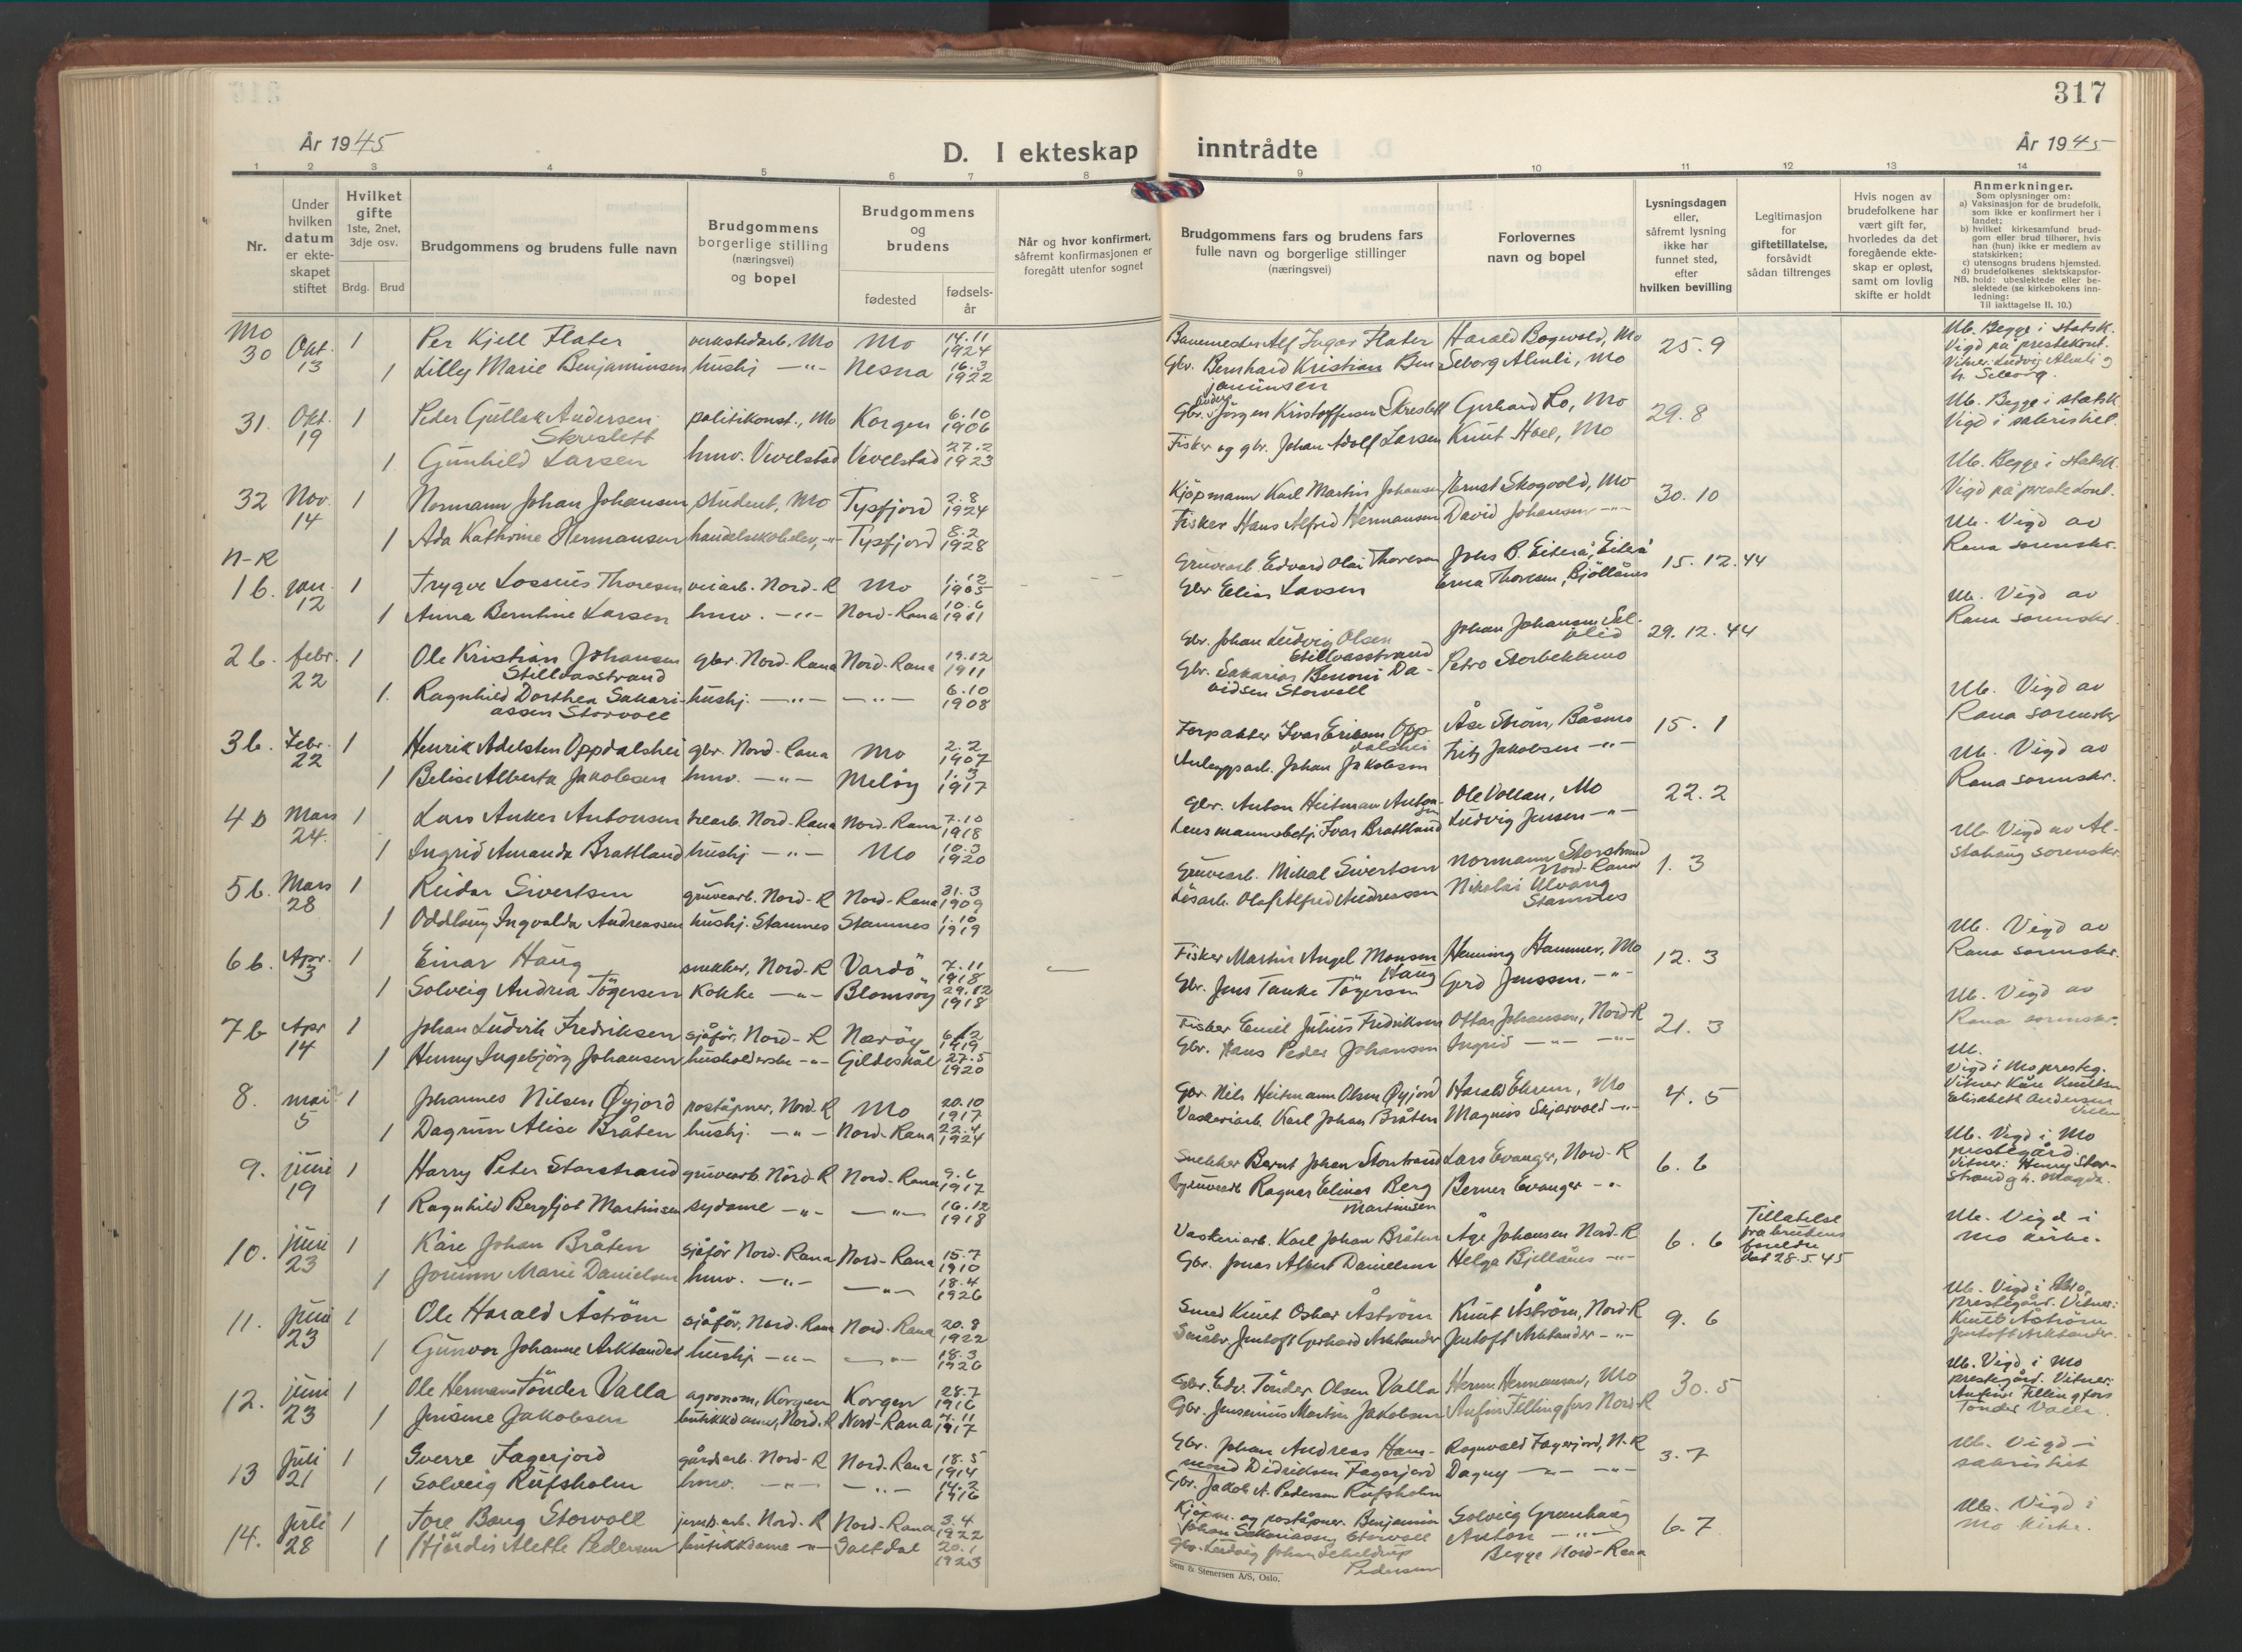 317
År 1945
D. I ekteskap inntrådte
År 1945
1 2 3 4 5 6 7 8 9 10 11 12 13 14
Nr.
Under
hvilken
datum
er ekte-
skapet
stiftet
Hvilket
gifte
1ste, 2net,
3dje osv.
Brdg. Brud
Brudgommens og brudens fulle navn
Brudgommens
borgerlige stilling
(næringsvei)
og bopel
Brudgommens
og
brudens
fødested
fødsels-
år
Når og hvor konfirmert,
såfremt konfirmasjonen er
foregått utenfor sognet
Brudgommens fars og brudens fars
fulle navn og borgerlige stillinger
(næringsvei)
Forlovernes
navn og bopel
Lysningsdagen
eller,
såfremt lysning
ikke har
funnet sted,
efter
hvilken bevilling
Legitimasjon
for
giftetillatelse,
forsåvidt
sådan tiltrenges
Hvis nogen av
brudefolkene har
vært gift før,
hvorledes da det
foregående ekte-
skap er opløst,
samt om lovlig
skifte er holdt
Anmerkninger.
Som oplysninger om:
a) Vaksinasjon for de brudefolk,
som ikke er konfirmert her i
landet;
b) hvilket kirkesamfund brud-
gom eller brud tilhører, hvis
han (hun) ikke er medlem av
statskirken;
c) utensogns brudens hjemsted.
d) brudefolkenes slektskapsfor-
NB. hold: ubeslektede eller be-
slektede (se kirkebokens inn-
ledning:
Til iakttagelse II. 10.)
Mo
30 Okt. 13 1 Per Kjell Flater verkstedarb. Mo Mo 14.11 1924 Banemester Alf Ingvar Flater Harald Bogvold, Mo 25.9 Ub. Begge i statsk.
Vigd på prestekont.
1 Lilly Marie Benjaminsen hushj -"- Nesna 16.3 1922 Gbr. Bernhard Kristian Benjaminsen Seborg Almli, Mo Vitner: Ludvig Almli og
h. Seborg.
31. Okt. 19 1 Peder Gullak Andersen Skreslett politikonst., Mo Korgen 6.10 1906 Gbr. Anders Jörgen Kristoffersen Skreslett Gerhard Lo, Mo 29.8 Ub. Begge i statsk
Vigd i sakristiet.
1 Gunhild Larsen hmv. Vevelstad Vevelstad 27.2 1923 Fisker og gbr. Johan Adolf Larsen Knut Hoel, Mo
32 Nov. 14 1 Normann Johan Johansen student, Mo Tysfjord 2.8 1924 Kjöpmann Karl Martin Johansen Ernst Skogvold, Mo 30.10 Ub. Begge i statsk.
Vigd på prestekont.
1 Ada Kathrine Hermansen handelsskoleelev, -"- Tysfjord 8.2 1928 Fisker Hans Alfred Hermansen David Johansen -"-
N-R
1 b. jan. 12 1 Trygve Lossius Thoresen veiarb. Nord-R Mo 1.12 1905 Gruvearb. Edvard Olai Thoresen Johs B. Eiterå, Eiterå 15.12.44 Ub. Vigd av
Rana sorenskr.
1 Anna Berntine Larsen hmv. -"- Nord-Rana 10.6 1911 Gbr Elias Larsen Erna Thoresen, Bjöllånes
2 b. febr. 22 1 Ole Kristian Johansen Stillvasstrand gbr. Nord-Rana Nord-Rana 19.12 1911 Gbr. Johan Ludvig Olsen Stillvasstrand Johan Johansen 29.12.44 Ub. Vigd av
Rana sorenskr.
1. Ragnhild Dorthea Sakariassen Storvoll hushj. -"- -"- 6.10 1908 Gbr. Sakarias Benoni Davidsen Storvoll Petro Storbekkmo
3 b. Febr. 22 1 Henrik Adelsten Oppdalshei gbr. Nord-Rana Mo 2.2 1907 Forpakter Ivar Eriksen Oppdalshei Åse Ström, Båsmo 15.1 Ub. Vigd av
Rana sorenskr
1 Belise Alberta Jakobsen hmv. -"- Melöy 1.3 1917 Anleggsarb. Johan Jakobsen Fritz Jakobsen -"-
4 b Mars 24. 1 Lars Anker Antonsen trearb. Nord-Rana Nord-Rana 7.10 1918 Gbr. Anton Heitmann Antonsen Ole Vollan, Mo 22.2 Ub. Vigd av
Rana sorenskr.
1 Ingrid Amanda Brattland hushj -"- Mo 10.3 1920 Lensmannsbetj. Ivar Brattland Ludvig Jensen -"-
5 b. Mars 28 1 Reidar Sivertsen gruvearb. Nord-R Nord-Rana 31.3 1909 Gruvearb. Mikal Sivertsen Normann Storstrand Nord-Rana 1.3 Ub Vigd av Al-
stahaug sorenskr.
1 Oddlaug Ingvalda Andreassen hushj. Stamnes Stamnes 1.10 1919 Lösarb. Olaf Alfred Andreassen Nikolai Ulvang Stamnes
6 b. Apr. 3 1 Einar Haug snekker, Nord-R Vardö 7.11 1918 Fisker Martin Angel Monsen Haug Henning Hammer, Mo 12.3 Ub. Vigd av
Rana sorenskr.
1 Solveig Andrea Tögersen Kokke -"- Blomsöy 29.12 1918 Gbr. Jens Tanke Tögersen Gerd Jenssen, -"-
7 b Apr 14 1 Johan Ludvik Fredriksen sjåför, Nord-R Næröy 6.12 1919 Fisker Emil Julius Fredriksen Ottar Johansen, Nord-R 21.3 Ub. Vigd av
Rana sorenskr.
1 Henny Ingebjörg Johansen husholderske -"- Gildeskål 27.5 1920 Gbr. Hans Peder Johansen Ingrid -"- -"-
8. mai 5 1 Johannes Nilsen Øyjord poståpner, Nord.R Mo 20.10 1917 Gbr. Nils Heitmann Olsen Øyjord Harald Ehren, Mo 4.5 Ub.
Vigd i Mo presteg.
Vitner Kåre Knutsen
Elisabeth Andersen
1 Dagrun Alise Bråten hushj. -"- Nord-Rana 22.4 1924 Vaskeriarb. Karl Johan Bråten Magnus Skjærvold -"-
9. juni 19 1 Harry Peter Storstrand gruvearb. Nord-R Nord-Rana 9.6 1917 Snekker Bernt Johan Storstrand Lars Evanger, Nord-R 6.6 Ub. Vigd i Mo
prestegård.
Vitner: Henry Stor-
strand g h. Magda.
1 Ragnhild Bergljot Martinsen sydame -"- -"- 16.12 1918 Gruvearb Ragnar Elinor Berg Martinsen Berner Evanger -"-
10. juni 23 1 Kåre Johan Bråten sjåför Nord-Rana Nord-Rana 15.7 1910 Vaskeriarb. Karl Johan Bråten Åge Johansen Nord-R 6.6 Tillatelse
fra brudens
foreldre
dat 28.5.45 Ub. Vigd i
Mo kirke.
1 Jorunn Marie Danielsen hmv. -"- -"- 18.4 1926 Gbr. Jonas Albert Danielsen Helga Bjellånes -"-
11. juni 23 1 Ole Harald Åström sjåför, Nord-Rana Nord-Rana 20.8 1922 Smed Knut Oskar Åström Knut Åström, Nord-R 9.6 Ub. Vigd i Mo,
prestegård. Vitner:
Knut Åström
Jentoft Arktander.
1 Gunvor Johanne Arktander hushj -"- -"- 18.3 1926 Småbr. Jentoft Gerhard Arktander Jentoft Arktander -"-
12. juni 23 1 Ole Hermans Tönder Valla agronom, Korgen Korgen 28.7 1916 Gbr. Edv. Tönder Olsen Valla Herm. Hermansen, Mo 30.5 Ub. Vigd i Mo
prestegård. Vitner:
Anfinn Fillingfors
Tönder Valla.
1 Jenine Jakobsen butikkdame, Nord.R Nord-Rana 7.11 1917 Gbr. Jensenius Martin Jakobsen Anfinn Fillingfors Nord-R
13 Juli 21 1 Sverre Fagerjord gårdsarb. Nord-R Nord-Rana 18.5 1914 Gbr. Johan Andreas Hammond Didriksen Fagerjord Ragnvald Fagerjord, N-R 3.7 Ub. Vigd i
sakristiet
1 Solveig Rufsholm hmv. -"- -"- 14.2 1916 Gbr. Jakob A. Pedersen Rufsholm Dagny -"- -"-
14. juli 28 1 Tore Bang Storvoll jernb.arb. Nord-R Nord-Rana 3.4 1922 Kjöpm. og poståpner. Benjamin Johan Sakariassen Storvoll Solveig Grönhaug 6.7 Ub. Vigd i
Mo kirke.
1 Hjördis Alette Pedersen butikkdame -"- Saltdal 20.1 1923 Gbr. Ludvig Johan Scheldrup Pedersen Anton -"-
Begge Nord-Rana
Sem & Stenersen A/S, Oslo.